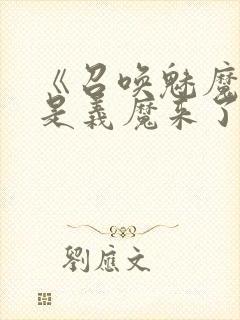 《召唤魅魔
是義魔来了
劉應文